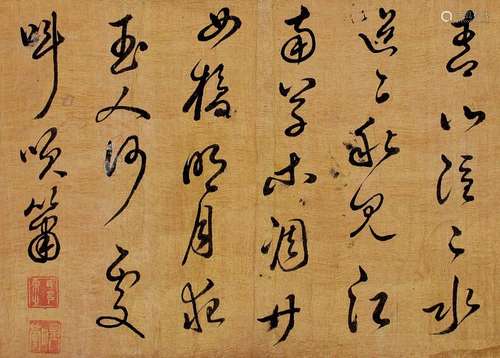 青山隱〻水
迢〻秋盡江
南草木凋廿
四橋明月夜
玉人何處
叫吹簫